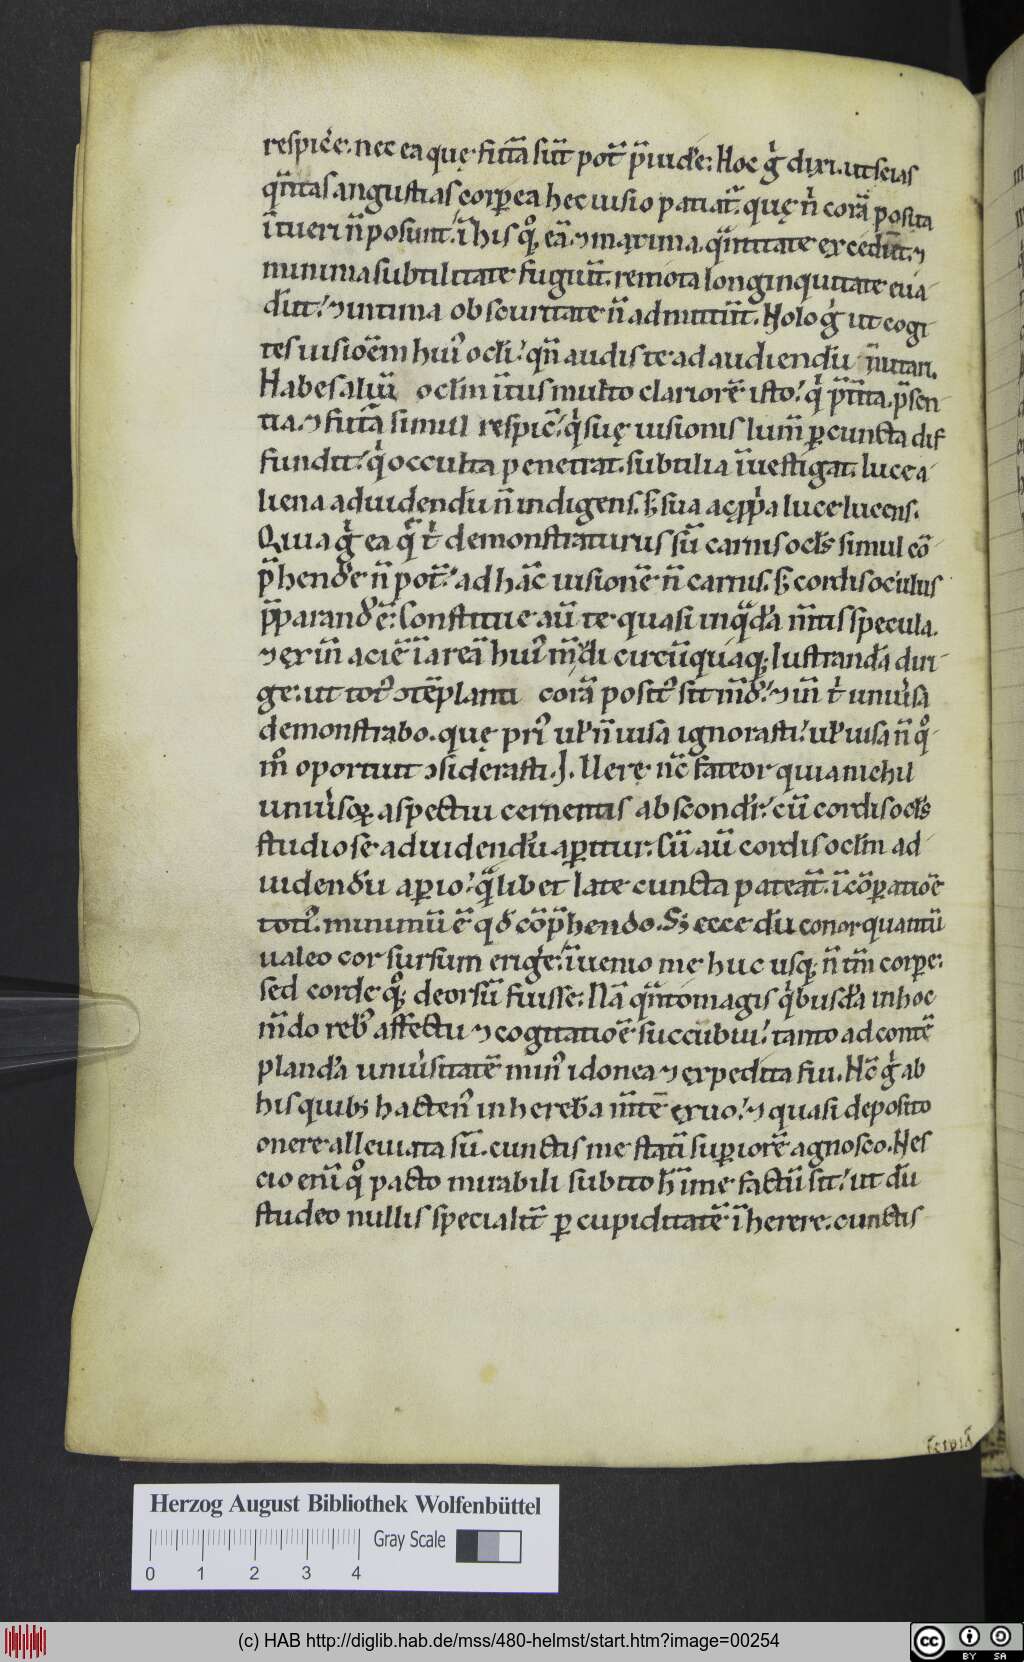 respic̄e. nec ea quę futa̅ su̅t pot̅ p̅uide̅. Hoc g̊ dixi. ut scias
qn̅tas angustias corꝑea hec uisio patiat̅. quę n̅ cora̅ posita
i̅tueri n̅ possunt. i̅ his q̊ꝫ ea̅ ⁊ maxima. qn̅titate excedu̅t. ⁊
minima subtilitate fugiu̅t. remota longinquitate eua
du̅t. ⁊ intima obscuritate n̅ admittu̅t. Nolo g̊ ut cogi
tes uisioe̅m hui᾿ ocl̅i. qn̅ audis te ad audiendu̅ n̅uitari.
Habes aliu̅ oclm̅ i̅tus multo clariore̅ isto. q̊ p̅t̅ita. p̅sen
tia. ⁊ futa̅ simul respic̅. q̊ suę uisionis lum̅ ꝑ cuncta dif
fundit. q̊ occulta penetrat. subtilia i̅uestigat. luce a
liena ad uidendu̅ n̅ indigens. s; sua ac ꝓp̊a luce lucens.
Quia g̊ ea q̅ t̊ demonstraturus su̅ carnis ocl̅s simul co̅
p̅hende̅ n̅ pot̅. ad ha̅c uisione̅ n̅ carnis. s; cordis oculus
p̅parand᾿ e̅. Constitue au̅ te quasi in q̅da̅ m̅tis specula.
⁊ exin̅ acie̅ i̅ area̅ hui᾿ mu̅di circu̅quaq; lustranda̅ diri
ge. ut tot᾿ ↄte̅planti cora̅ posit᾿ sit mu̅d᾿. ⁊ in̅ t̊ uniu̅sa
demonstrabo. quę pri᾿ ul̅ n̅ uisa ignorasti. ul̅ uisa n̅ q̊
m̊ oportuit ↄsiderasti. I. Uere nc̅ fateor quia nichil
uniu̅soꝝ aspectui cernentis abscondit̅. cu̅ cordis ocl̅s
studiose ad uidendu̅ aꝑitur. Cu̅ au̅ cordis oclm̅ ad
uidendu̅ aꝑio. q̅libet late cuncta pateat̅. i̅ co̅ꝑatioe̅
toti᾿. minimu̅ e̅ qd̅ co̅p̅hendo. Sꝫ ecce du̅ conor quantu̅
ualeo cor sursum erige̅. i̅uenio me huc usq; n̅ tm̅ corꝑe.
sed corde q̊ꝫ deorsu̅ fuisse. Na̅ qn̅to magis q̊busda̅ in hoc
mu̅do reb᾿ affectu ⁊ cogitatioe̅ succubui. tanto ad conte̅
planda̅ uniu̅sitate̅ min᾿ idonea ⁊ expedita fui. Nc̅ g̊ ab
his quibꝫ hacten᾿ inhereba̅ m̅te̅ exuo. ⁊ quasi deposito
onere alleuiata su̅. cunctis me stati̅ suꝑiore̅ agnosco. Nes
cio eni̅ q̊ pacto mirabili subito h̅ i̅ me factu̅ sit. ut du̅
studeo nullis specialit̅ ꝑ cupiditate̅ i̅herere. cunctis
Herzog August Bibliothek Wolfenbüttel
Gray Scale
0 1 2 3 4
(c) HAB http://diglib.hab.de/mss/480-helmst/start.htm?image=00254
cc BY SA